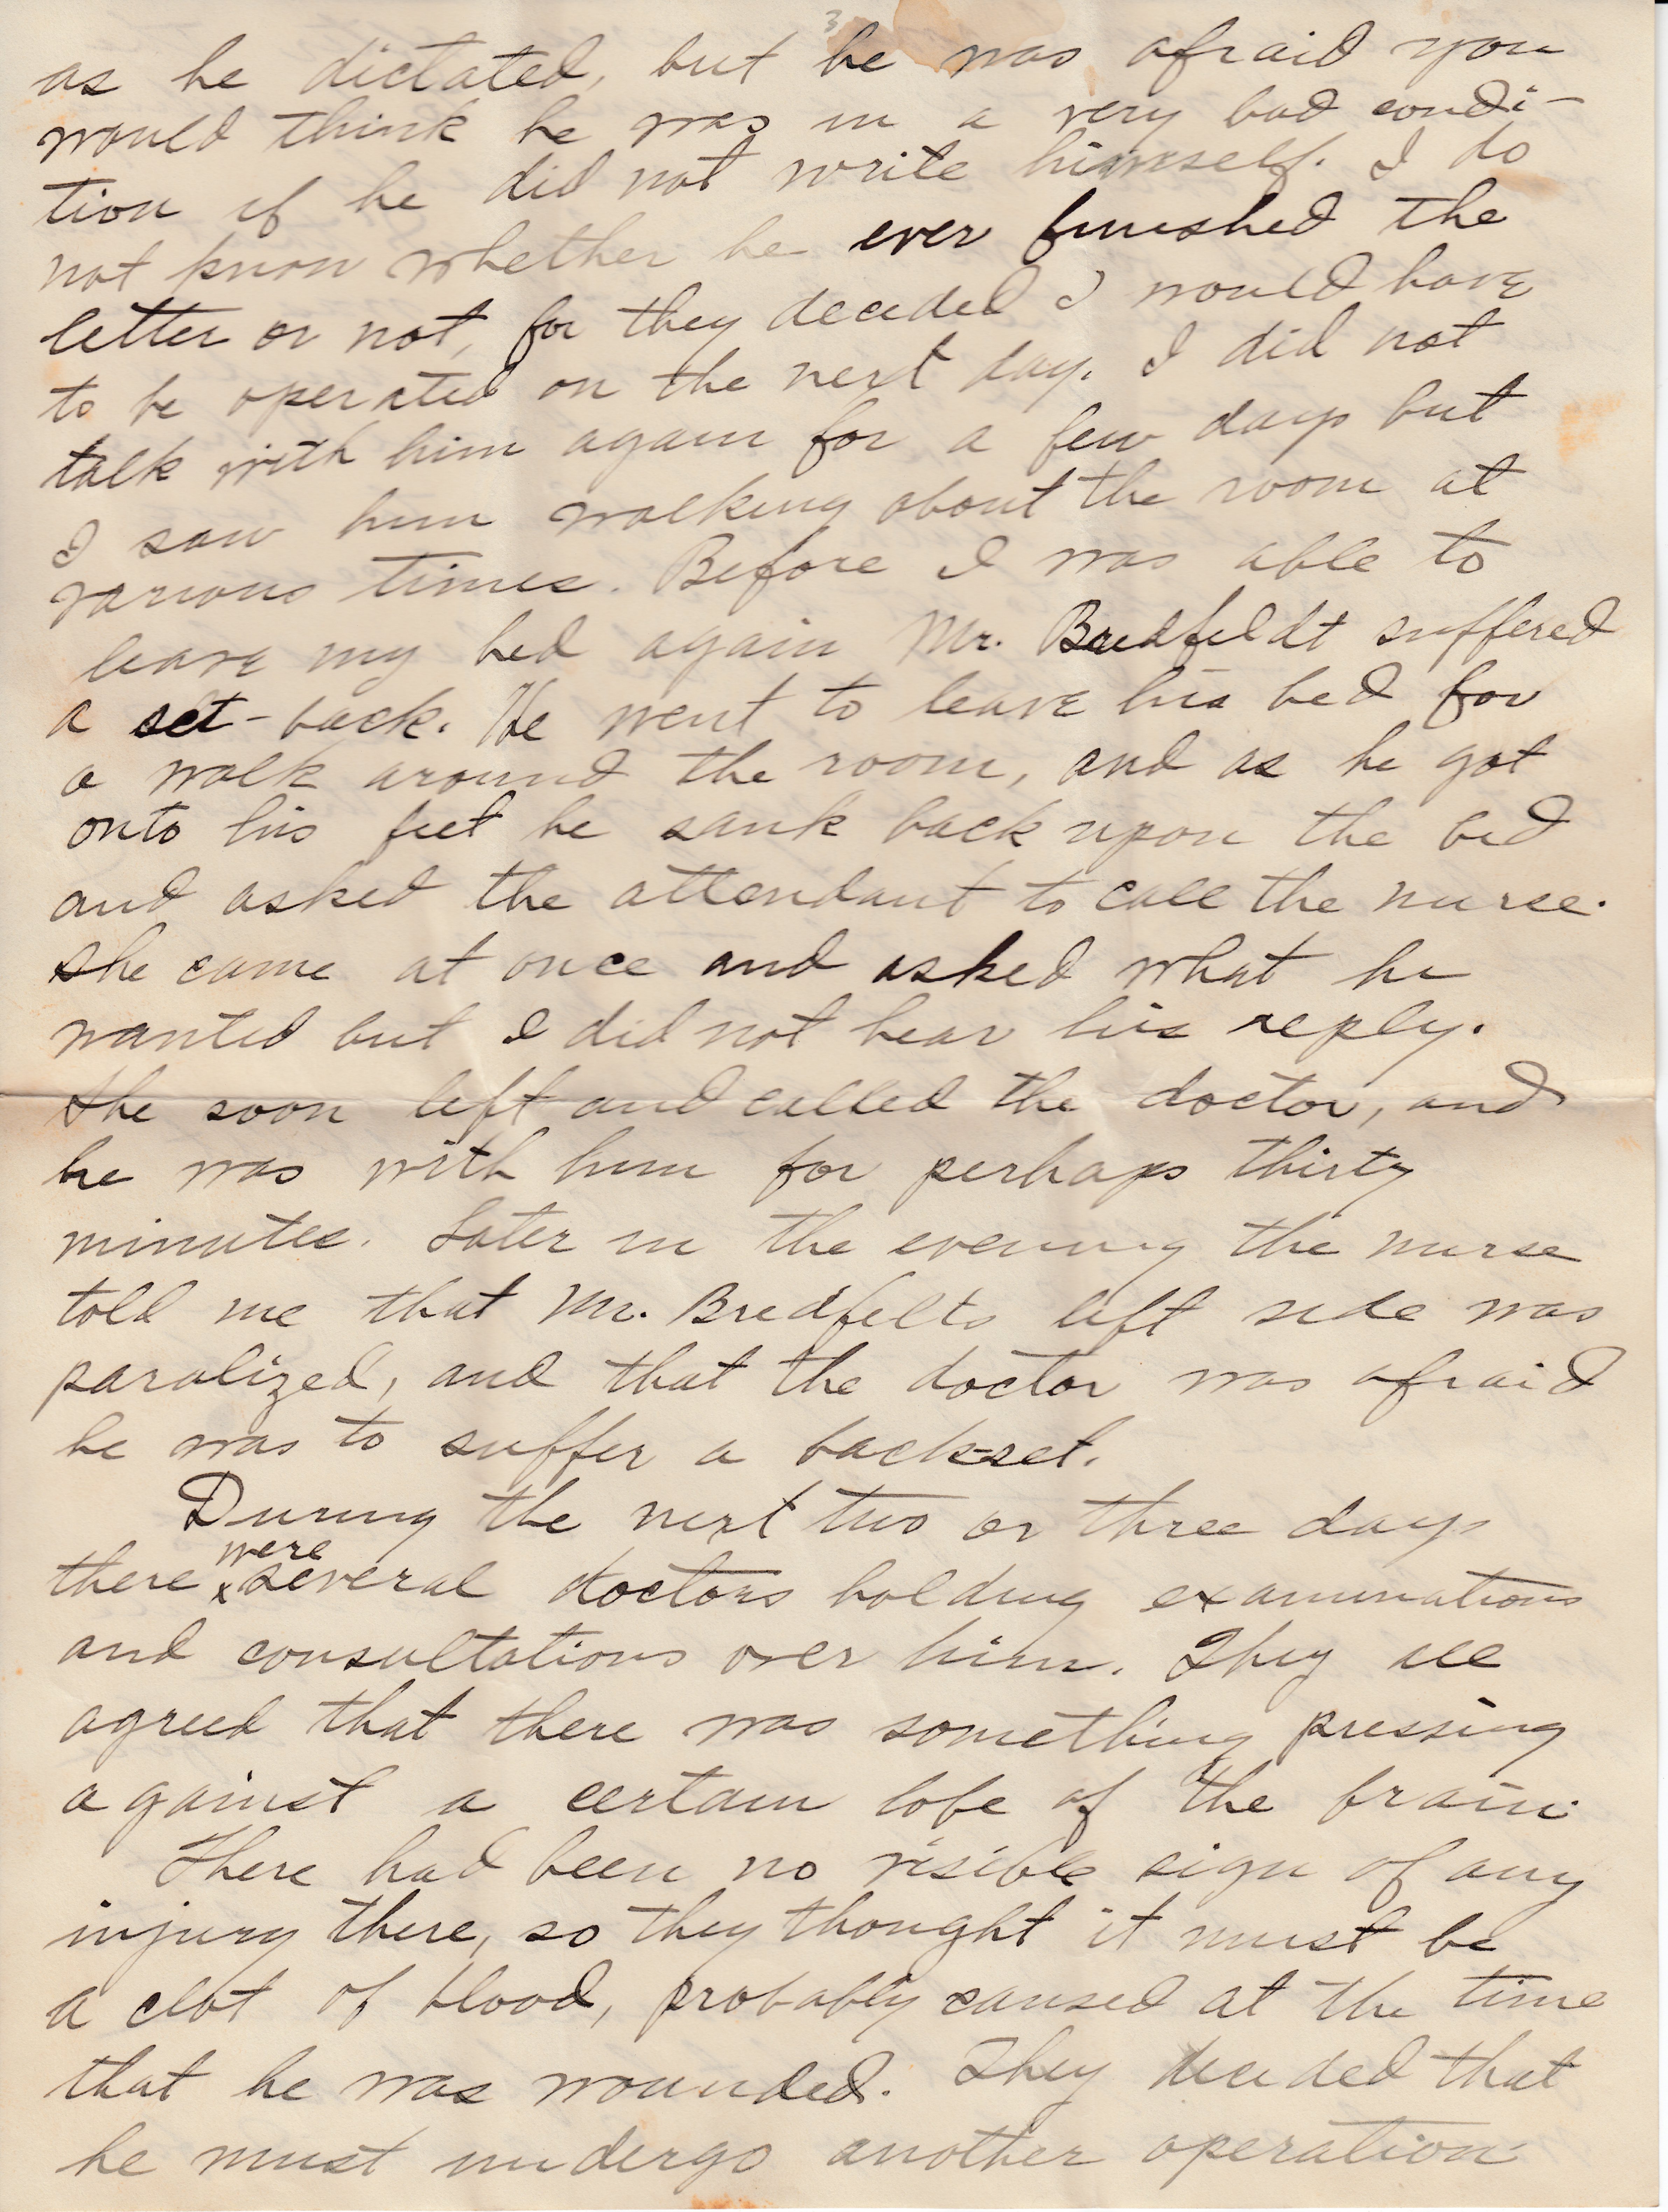 3
as he dictated, but he was afraid you
would think he was in a very bad condi-
tion if he did not write himself. I do
not know whether he ever finished the
letter or not, for they decided I would have
to be operated on the next day. I did not
talk with him again for a few days but
I saw him walking about the room at
various times. Before I was able to
leave my bed again Mr. Bredfeldt suffered
a set-back. He went to leave his bed for
a walk around the room, and as he got
onto his feet he sank back upon the bed
and asked the attendant to call the nurse.
She came at once and asked what he
wanted but I did not hear his reply.
She soon left and called the doctor, and
he was with him for perhaps thirty
minutes. Later in the evening the nurse
told me that Mr. Bredfelts left side was
paralized, and that the doctor was afraid
he was to suffer a back-set.
During the next two or three days
were
there x several doctors holding examinations
and consultations over him. They all
agreed that there was something pressing
against a certain lobe of the brain.
There had been no visible sign of any
injury there, so they thought it must be
a clot of blood, probably caused at the time
that he was wounded. They decided that
he must undergo another operation